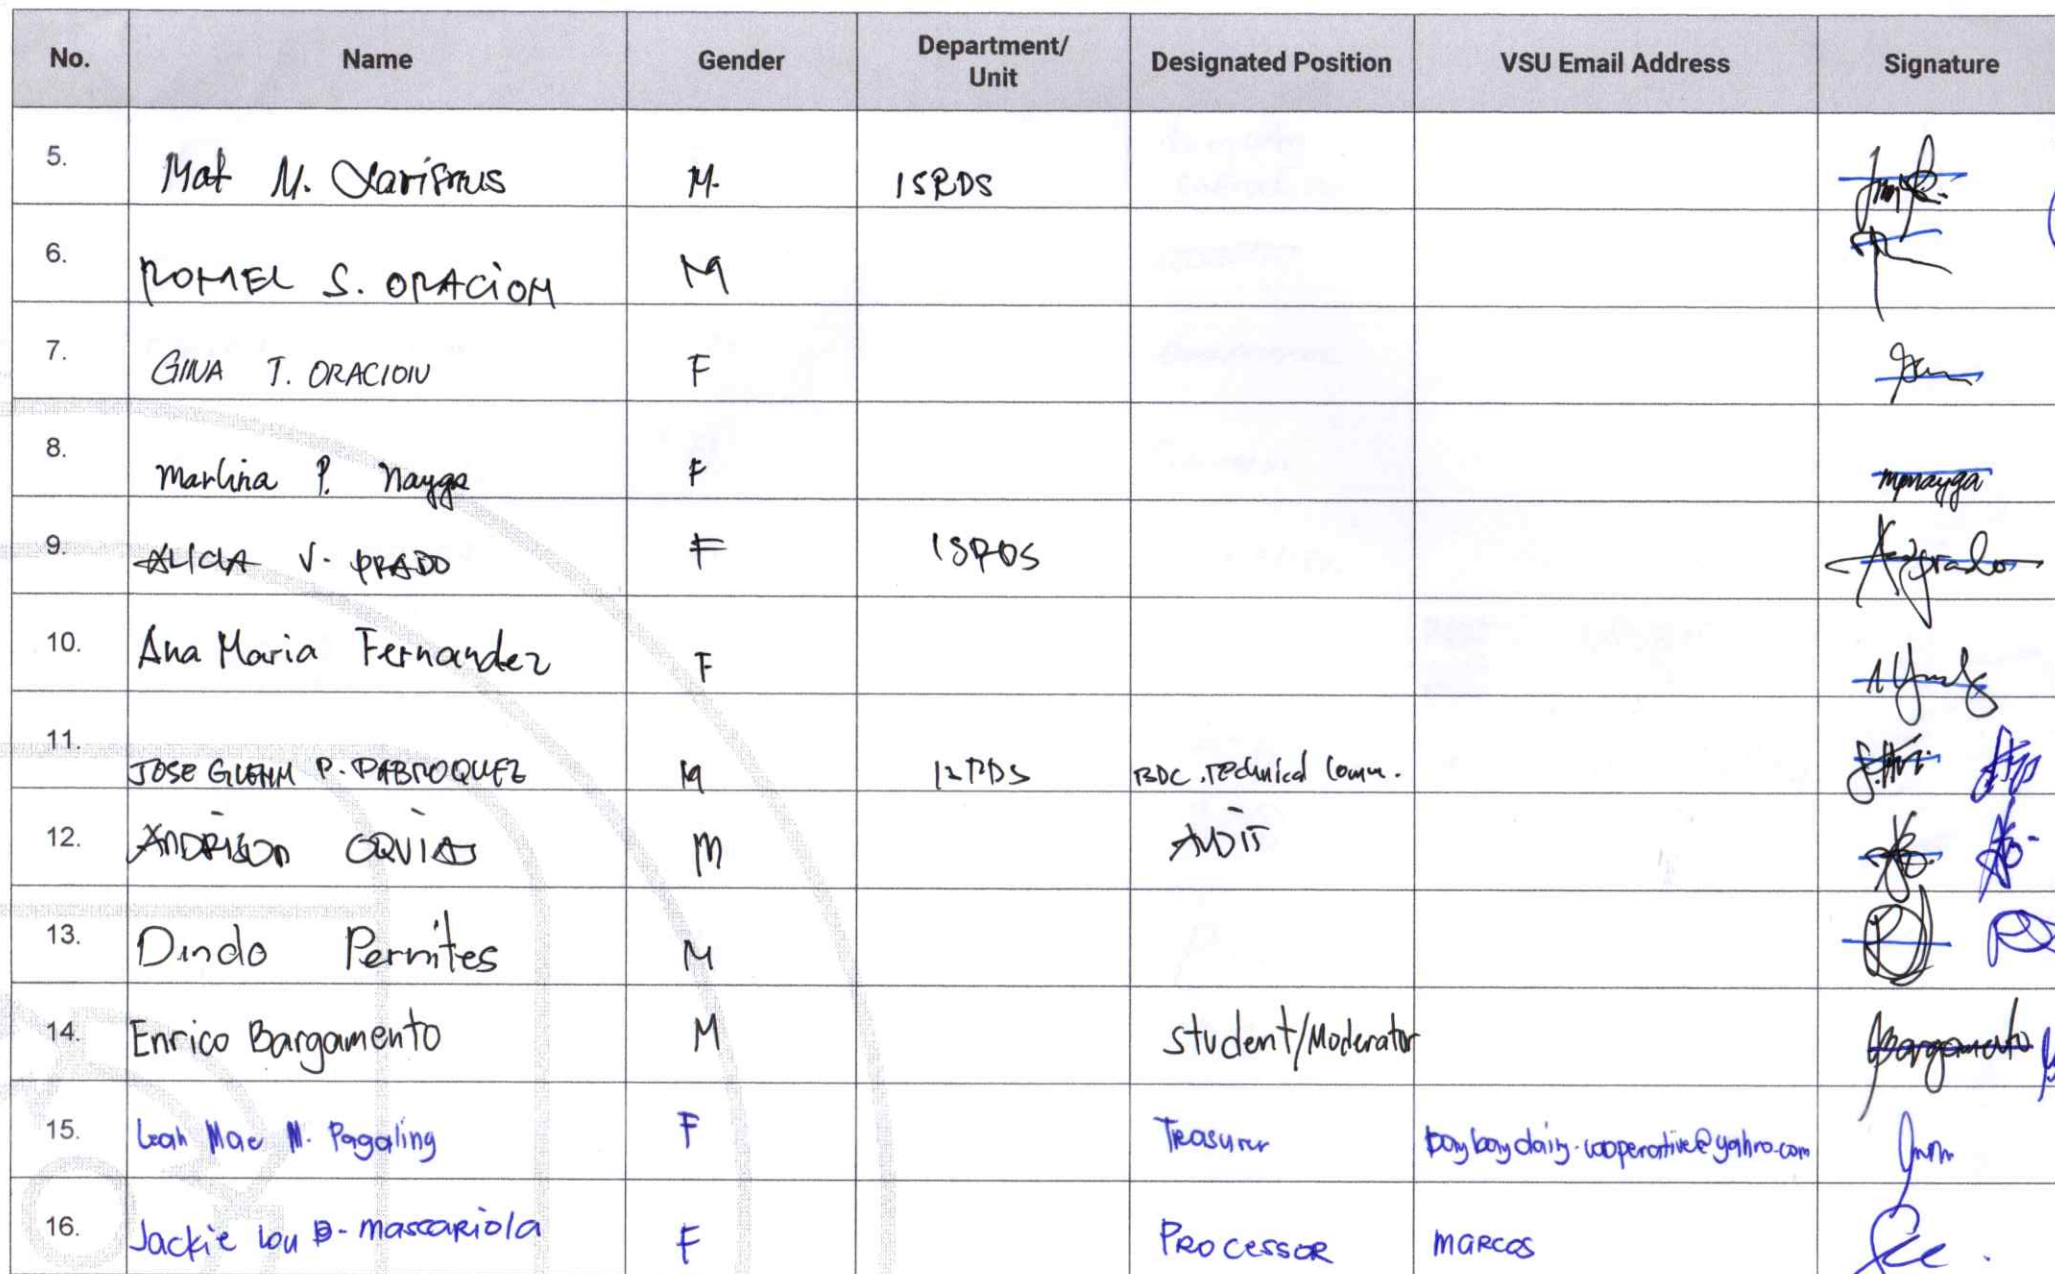 No. Name Gender Department/ Unit Designated Position VSU Email Address Signature
5. Mat M. M. ISRDS
6. ROMEL S. ORACION M
7. GINA T. ORACION F
8. Marlina P. Nayga F mpnayga
9. ALICIA V. PRADO F ISRDS
10. Ana Maria Fernandez F
11. JOSE GLENN P. PABROQUEZ M ISRDS BDC. Technical Comm.
12. M AUDIT
13. Dindo Permites M
14. Enrico Bargamento M Student/Moderator Bargamento
15. Leah Mae M. Pagaling F Treasurer
16. Jackie Lou B. Mascariola F PROCESSOR MARCOS